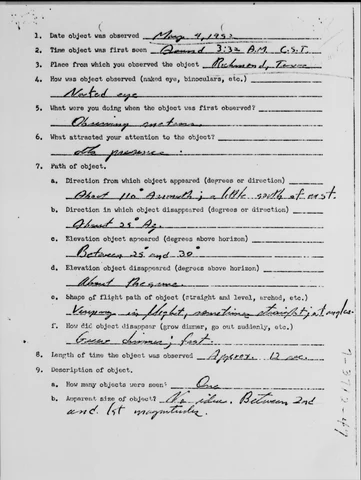 1. Date object was observed May 9, 1952
2. Time object was first seen Around 3:32 A.M. C.S.T.
3. Place from which you observed the object Richmond, Texas
4. How was object observed (naked eye, binoculars, etc.)
Naked eye
5. What were you doing when the object was first observed?
Observing meteors
6. What attracted your attention to the object?
Its presence.
7. Path of object.
a. Direction from which object appeared (degrees or direction)
About 110° Azimuth; a little south of east.
b. Direction in which object disappeared (degrees or direction)
About 25° Az.
c. Elevation object appeared (degrees above horizon)
Between 25 and 30°
d. Elevation object disappeared (degrees above horizon)
About the same.
e. Shape of flight path of object (straight and level, arched, etc.)
Varying in flight, sometimes straight, at angles.
f. How did object disappear (grow dimmer, go out suddenly, etc.)
Grew dimmer; fast.
8. Length of time the object was observed Approx. 12 sec.
9. Description of object.
a. How many objects were seen? One
b. Apparent size of object? No idea. Between 2nd
and 1st magnitudes.